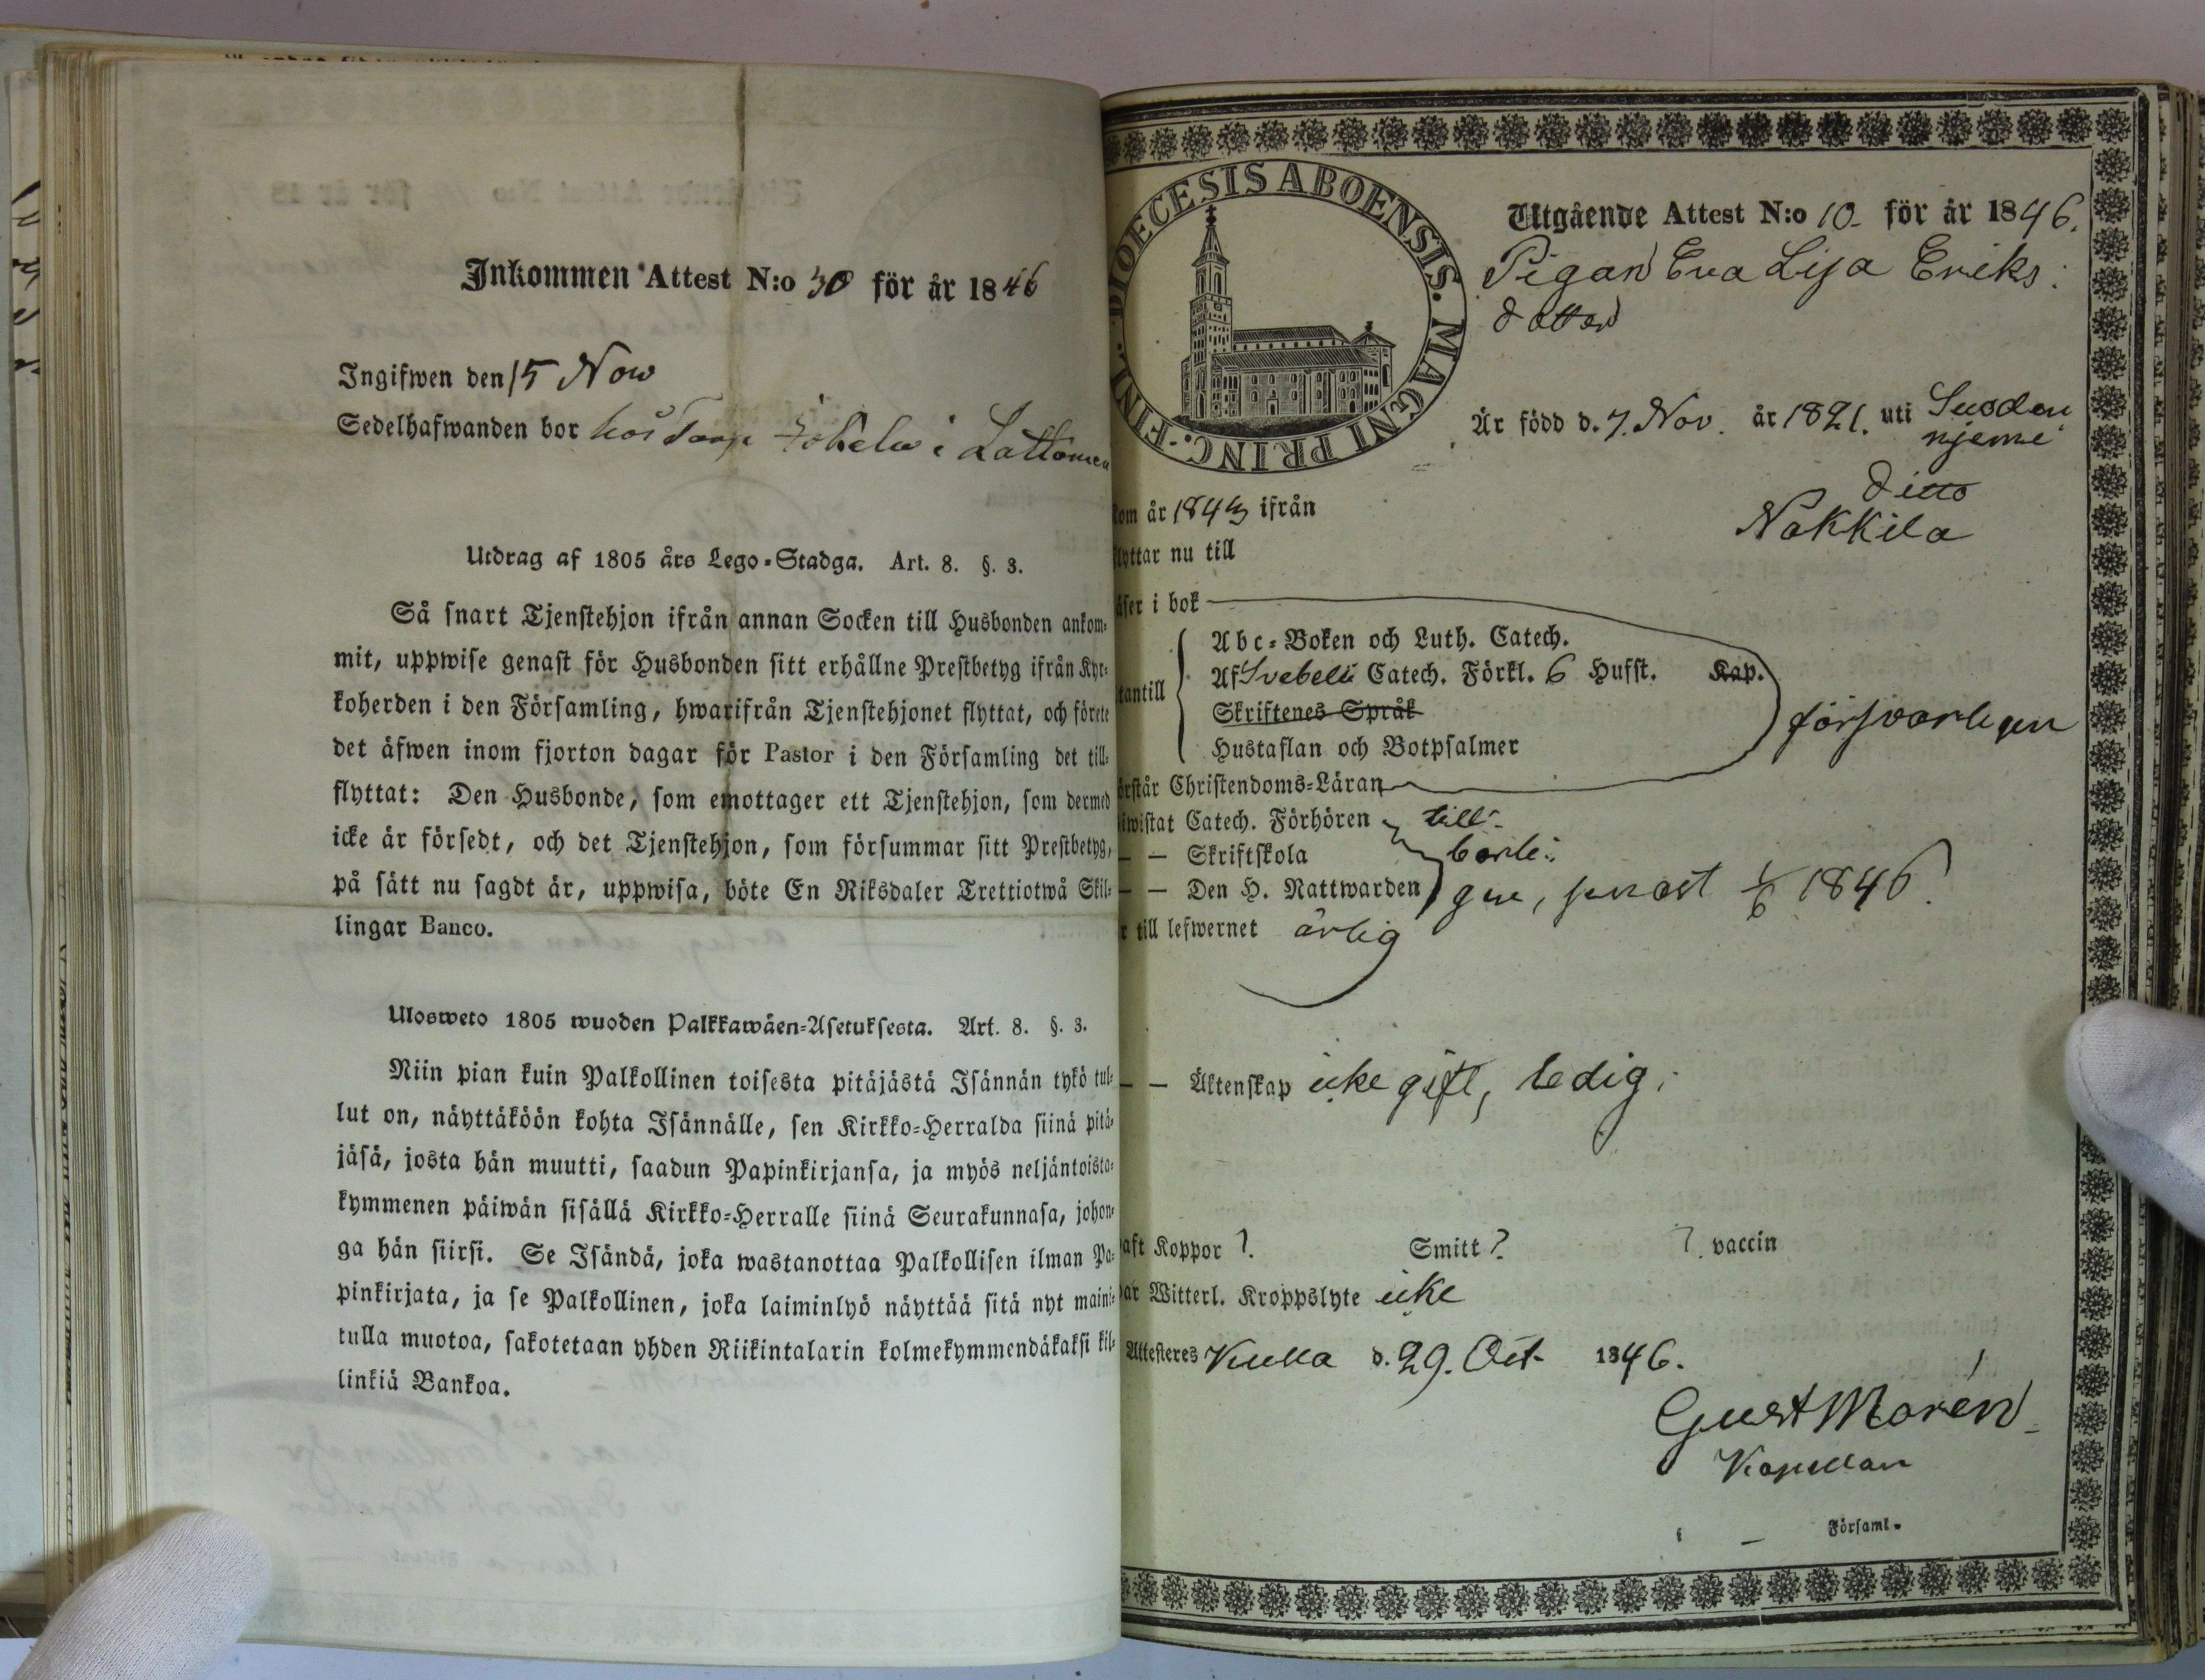 Inkommen Attest N:o 30 för år 1846
Ingifwen den 15 Now
Sedelhafwanden bor hos i Lattomeri
Utdrag af 1805 års Lego-Stadga. Art. 8. §. 3.
Så snart Tjenstehjon ifrån annan Socken till Husbonden ankom-
mit, uppwise genast för Husbonden sitt erhållne Prestbetyg ifrån Kyr-
koherden i den Församling, hwarifrån Tjenstehjonet flyttat, och förete
det äfwen inom fjorton dagar för Pastor i den Församling det till-
flyttat: Den Husbonde, som emottager ett Tjenstehjon, som dermed
icke är försedt, och det Tjenstehjon, som försummar sitt Prestbetyg,
på sätt nu sagdt är, uppwisa, böte En Riksdaler Trettiotwå Skil-
lingar Banco.
Ulosweto 1805 wuoden Palkkawäen-Asetuksesta. Art. 8. §. 3.
Niin pian kuin Palkollinen toisesta pitäjästä Isännän tykö tul-
lut on, näyttäköön kohta Isännälle, sen Kirkko-Herralda siinä pitä-
jäsä, josta hän muutti, saadun Papinkirjansa, ja myös neljäntoista-
kymmenen päiwän sisällä Kirkko-Herralle siinä Seurakunnasa, johon-
ga hän siirsi. Se Isändä, joka wastanottaa Palkollisen ilman Pa-
pinkirjata, ja se Palkollinen, joka laiminlyö näyttää sitä nyt maini-
tulla muotoa, sakotetaan yhden Riikintalarin kolmekymmendäkaksi kil-
linkiä Bankoa.
DIOECESIS ABOENSIS. MAGNI PRINC. FINL.
Utgående Attest N:o 10. för år 1846.
Pigan Eva Lisa Eriks:
dotter
Är född d. 7. Nov. år 1821. uti Suoden
njemi
kom år 1843 ifrån ditto
flyttar nu till Nakkila
äser i bok
Abc-Boken och Luth. Catech.
utantill Af Svebelii Catech. Förkl. 6 Hufst. Kap.
Skriftenes Språk
Hustaflan och Botpsalmer
försvarligen
örstår Christendoms-Läran
iwistat Catech. Förhören till-
— — Skriftskola börli:
— — Den H. Nattwarden gen, senast 1/6 1846.
r till lefwernet ärlig
— — Äktenskap icke gift, ledig.
aft Koppor ?. Smitt ? ?. vaccin
har Witterl. Kroppslyte icke
Attesteres Kulla d. 29. Oct. 1846.
Gust Morén
Kapellan
i — Församl.